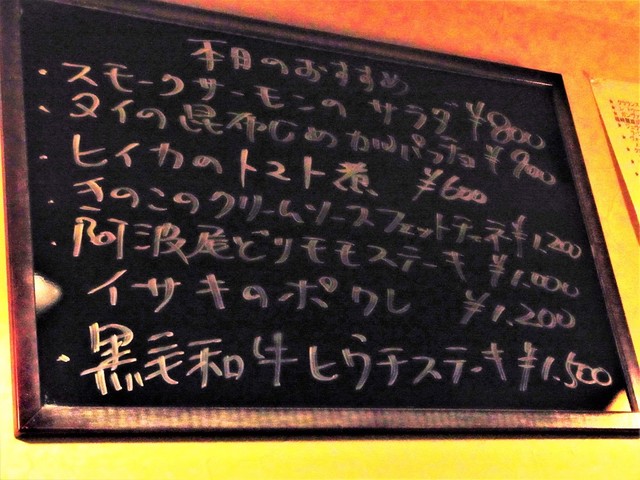 本日のおすすめ
・スモークサーモンのサラダ ¥800
・タイの昆布じめカルパッチョ ¥900
・ヒイカのトマト煮 ¥600
・きのこのクリームソースフェットチーネ ¥1,200
・阿波尾どりモモステーキ ¥1,000
イサキのポワレ ¥1,200
・黒毛和牛ヒウチステーキ ¥1,500